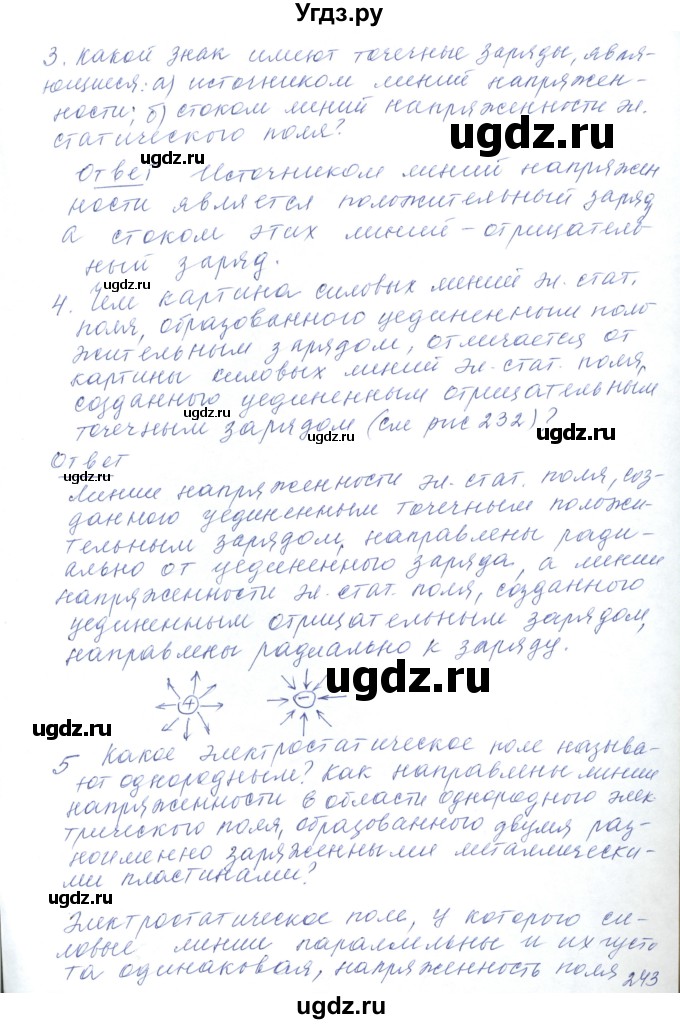 Угдз.ру
3. Какой знак имеют точечные заряды, явля-
ющиеся: а) источником линий напряжен-
ности; б) стоком линий напряженности эл.
статического поля?
ugdz.ru
ugdz.ru
Ответ Источником линий напряжен
ugdz.ru
ности является положительный заряд
а стоком этих линий - отрицатель
ный заряд.
ugdz.ru
4. Чем картина силовых линий эл. стат.
поля, образованного уединенным поло
жительным зарядом, отличается от
ugdz.ru
картины силовых линий эл. стат. поля,
созданного уединенным отрицательным
ugdz.ru
точечным зарядом (см рис 232)?
ugdz.ru
Ответ
Линии напряженности эл. стат. поля, соз-
данного уединенным точечным положи-
тельным зарядом, направлены ради-
ugdz.ru
ально от уединенного заряда, а линии
напряженности эл. стат. поля, созданного
ugdz.ru
уединенным отрицательным зарядом,
направлены радиально к заряду.
ugdz.ru
ugdz.ru
+
-
ugdz.ru
5 Какое электростатическое поле называ-
ют однородным? Как направлены линии
напряженности в области однородного элек
ugdz.ru
трического поля, образованного двумя раз-
ноименно заряженными металлически-
ugdz.ru
ми пластинами?
ugdz.ru
Электростатическое поле, у которого си-
ловые линии параллельны и их густо
та одинаковая, напряженность поля
243
ugdz.ru
ugdz.ru